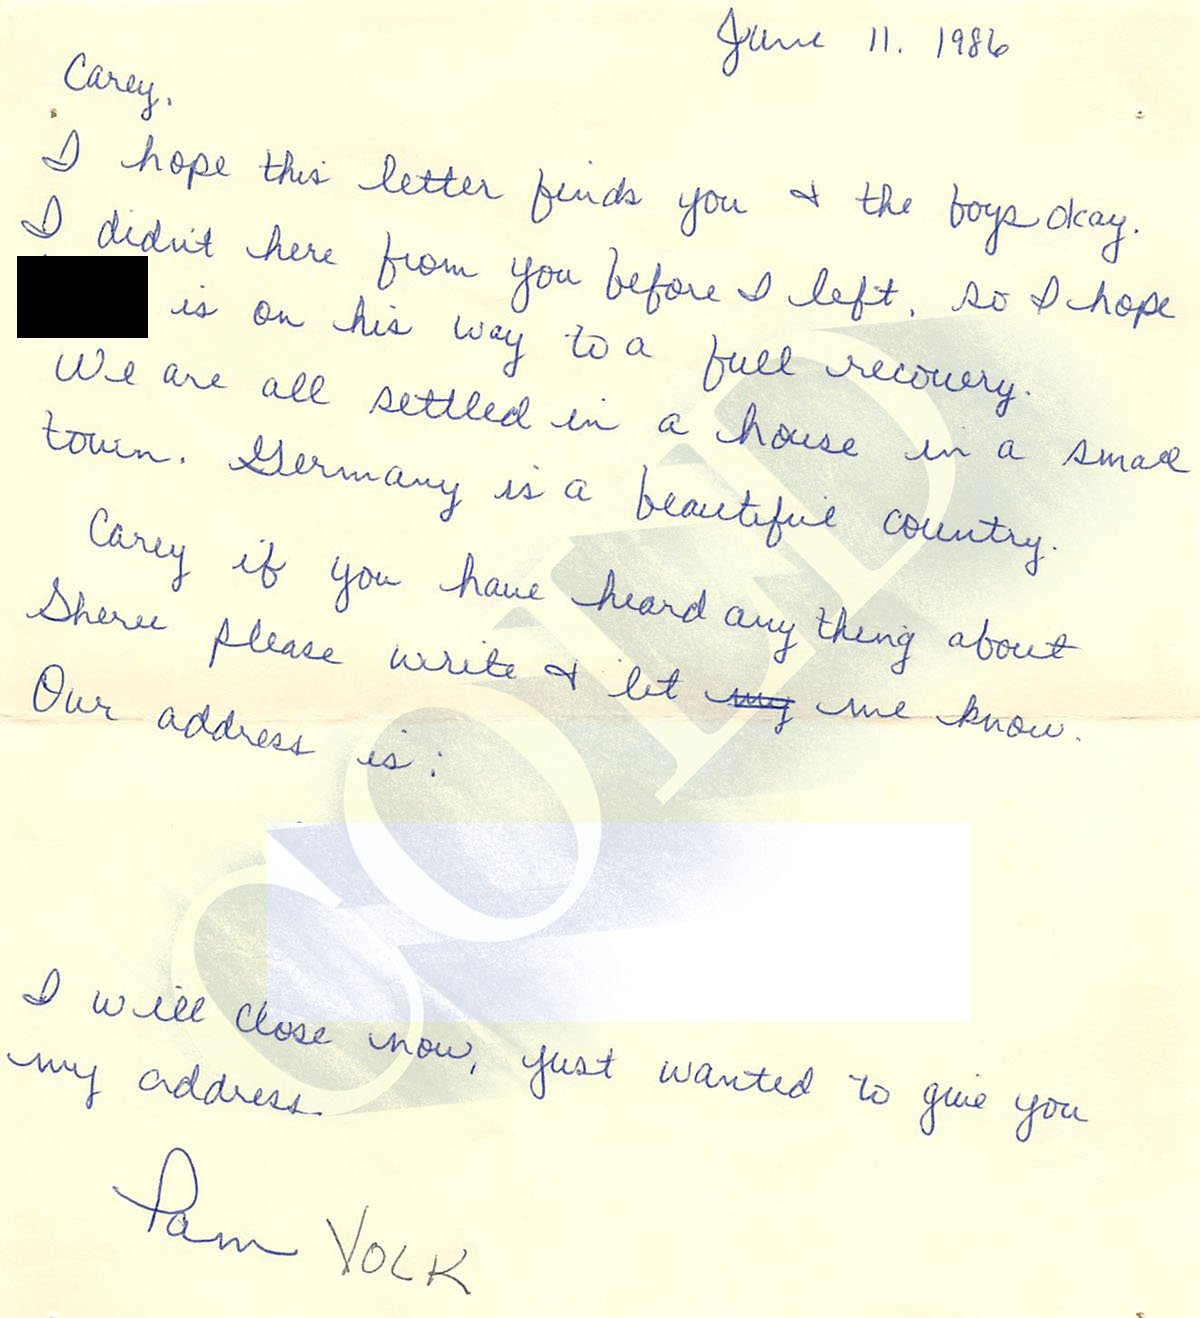 June 11. 1986
Carey,
I hope this letter finds you & the boys okay.
I didn't here from you before I left, so I hope
is on his way to a full recovery.
We are all settled in a house in a small
town. Germany is a beautiful country.
Carey if you have heard any thing about
Sheree please write & let my me know.
Our address is:
I will close now, just wanted to give you
my address.
Pam VOLK
COLD